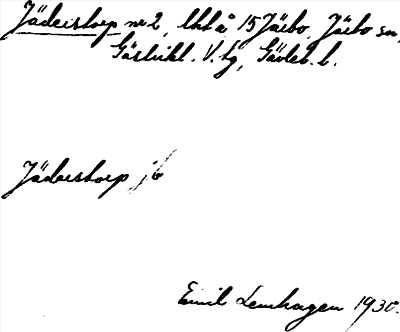 Jäderstorp nr 2, Uhtå 15 Järbo, Järbo sn,
Gästrikl. V. tg, Gävleb. l.
Jäderstorp jb
Emil Lenhagen 1930.